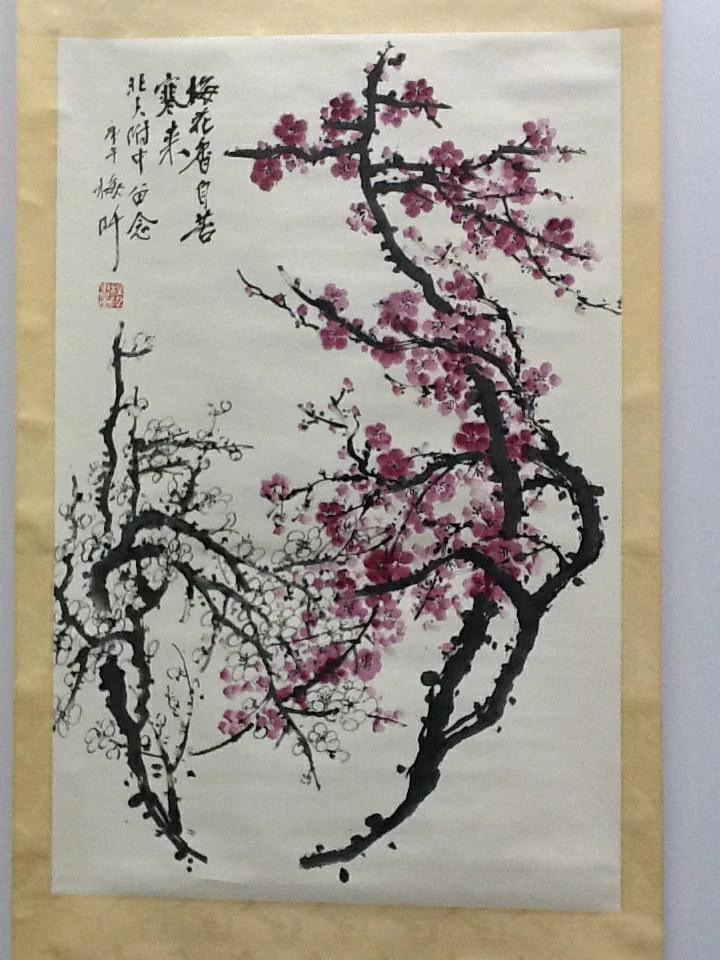 梅花香自苦
寒来
北大附中留念
庚午梅阡